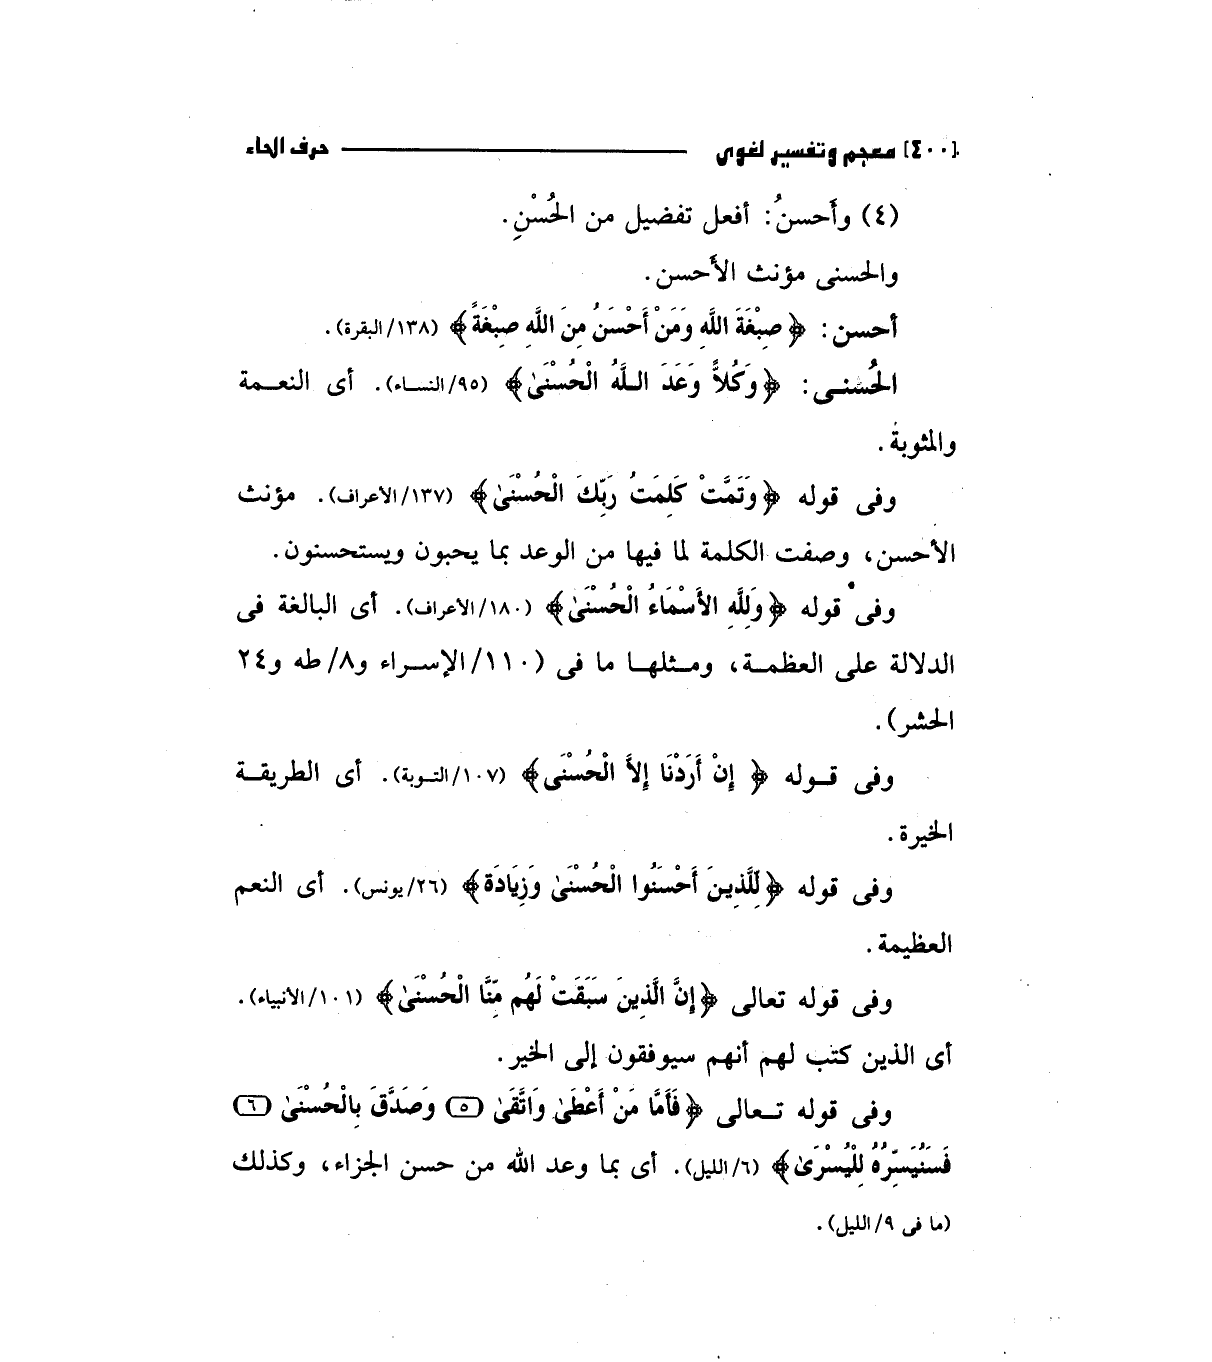 [٤٠٠] معجم وتفسير لغوى — حرف الحاء
(٤) وأَحسنُ: أفعل تفضيل من الحُسْنِ.
والحسنى مؤنث الأَحسن.
أحسن: ﴿صِبْغَةَ اللَّهِ وَمَنْ أَحْسَنُ مِنَ اللَّهِ صِبْغَةً﴾ (١٣٨/البقرة).
الحُسْنى: ﴿وَكُلاًّ وَعَدَ اللَّهُ الْحُسْنَىٰ﴾ (٩٥/النساء). أى النعمة
والمثوبة.
وفى قوله ﴿وَتَمَّتْ كَلِمَتُ رَبِّكَ الْحُسْنَىٰ﴾ (١٣٧/الأعراف). مؤنث
الأحسن، وصفت الكلمة لما فيها من الوعد بما يحبون ويستحسنون.
وفى قوله ﴿وَلِلَّهِ الأَسْمَاءُ الْحُسْنَىٰ﴾ (١٨٠/الأعراف). أى البالغة فى
الدلالة على العظمة، ومثلها ما فى (١١٠/الإسراء و٨/طه و٢٤
الحشر).
وفى قوله ﴿إِنْ أَرَدْنَا إِلاَّ الْحُسْنَى﴾ (١٠٧/التوبة). أى الطريقة
الخيرة.
وفى قوله ﴿لِّلَّذِينَ أَحْسَنُوا الْحُسْنَىٰ وَزِيَادَة﴾ (٢٦/يونس). أى النعم
العظيمة.
وفى قوله تعالى ﴿إِنَّ الَّذِينَ سَبَقَتْ لَهُم مِّنَّا الْحُسْنَىٰ﴾ (١٠١/الأنبياء).
أى الذين كتب لهم أنهم سيوفقون إلى الخير.
وفى قوله تعالى ﴿فَأَمَّا مَنْ أَعْطَىٰ وَاتَّقَىٰ (٥) وَصَدَّقَ بِالْحُسْنَىٰ (٦)
فَسَنُيَسِّرُهُ لِلْيُسْرَىٰ﴾ (٦/الليل). أى بما وعد الله من حسن الجزاء، وكذلك
(ما فى ٩/الليل).